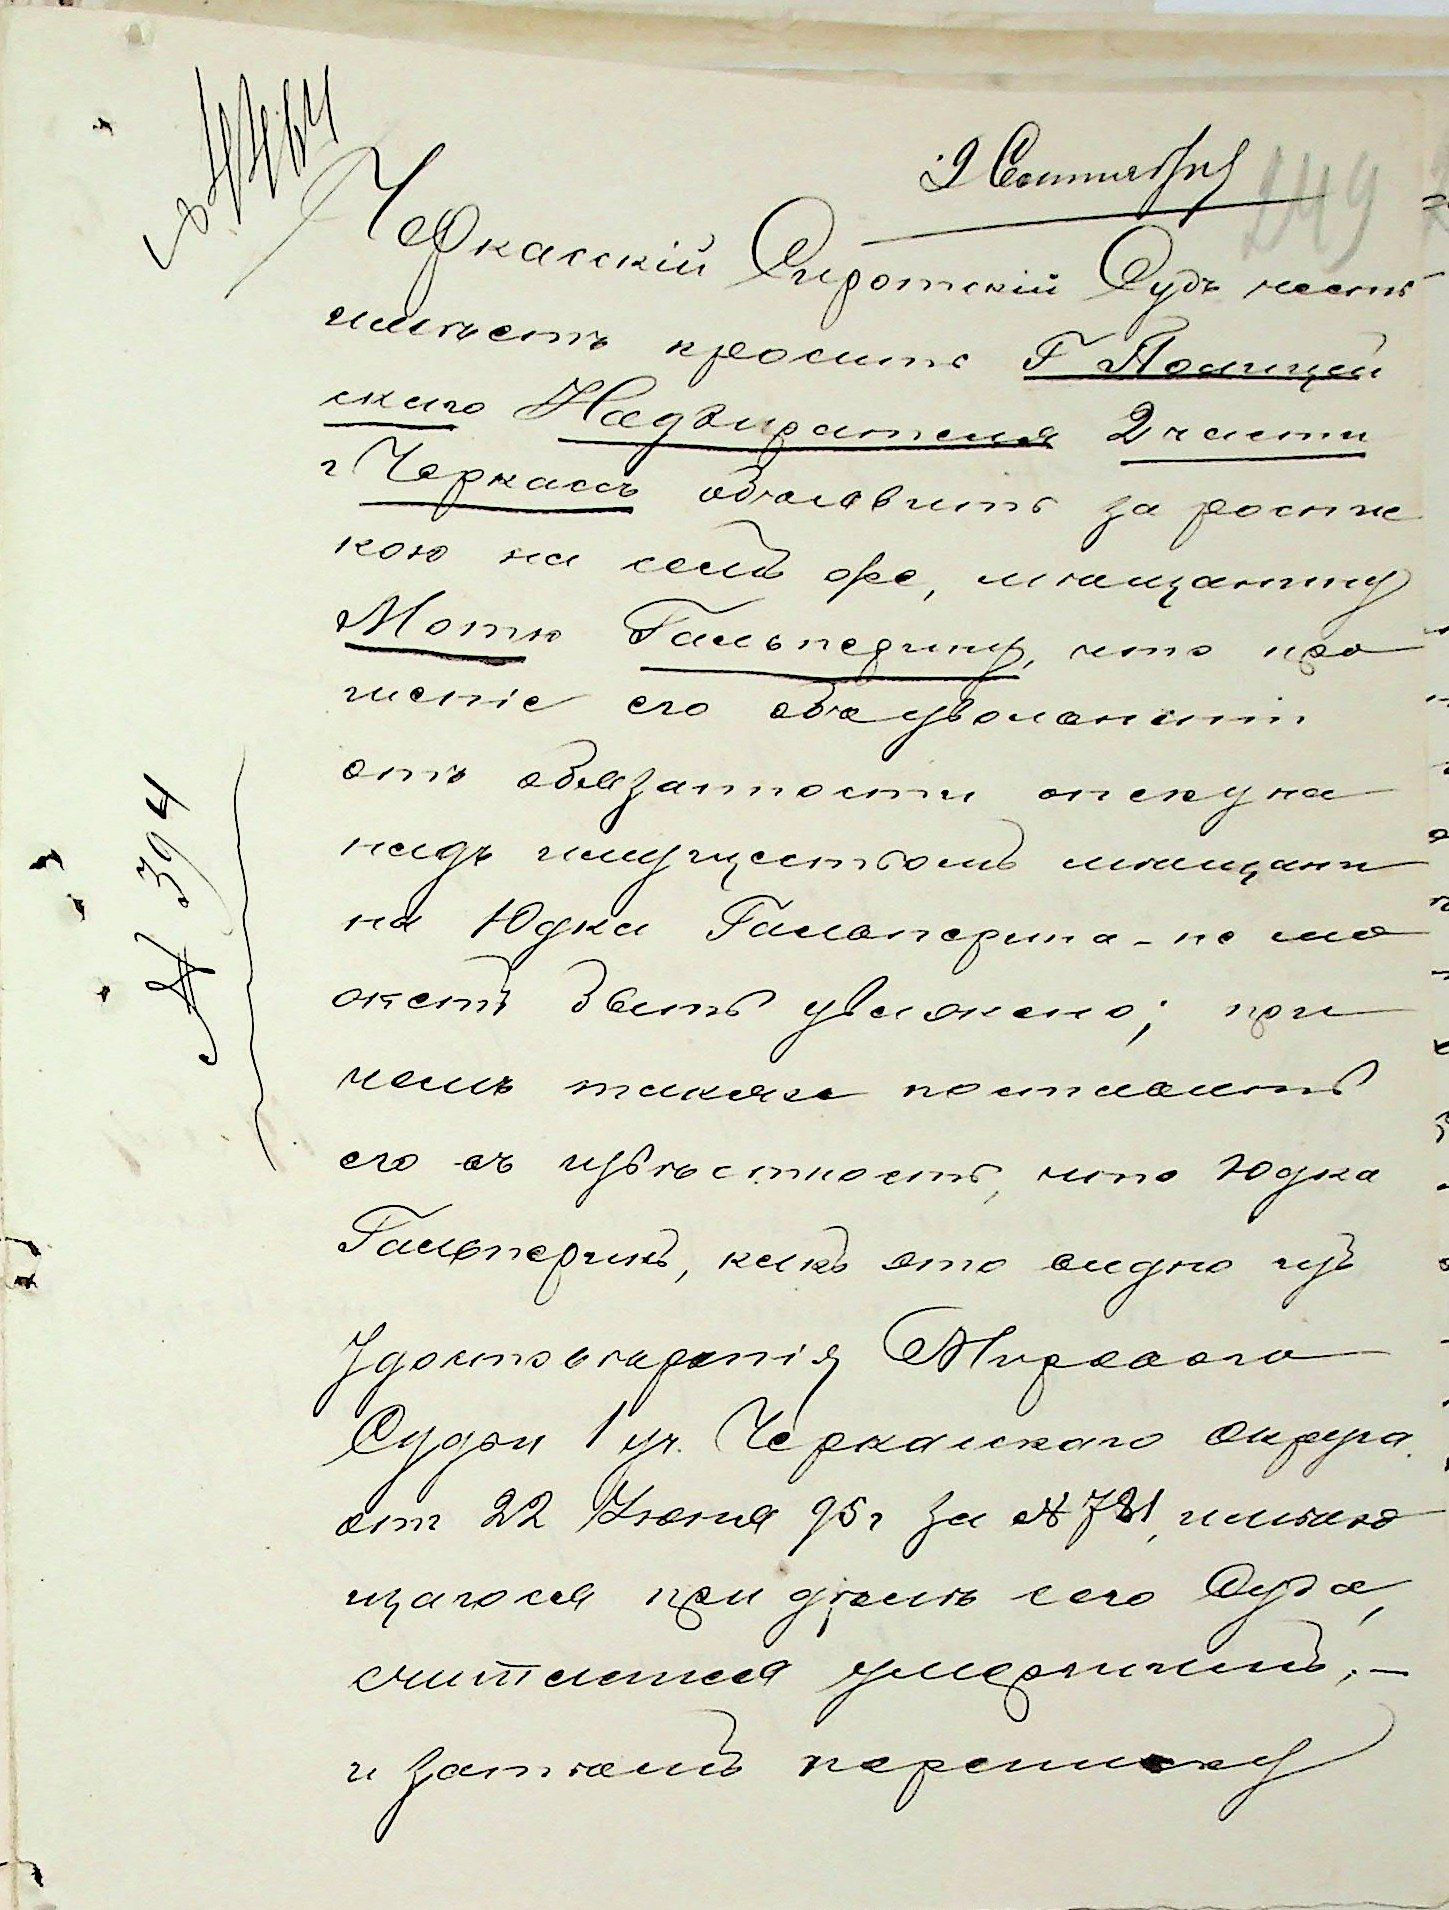 2 Сентября
249
Черкасскій Сиротскій Судъ честь
имѣетъ просить Г Полицей
скаго Надзирателя 2 части
г Черкассъ объявить за роспис
кою на семъ же, мѣщанину
Мотю Гальперину, что про
шеніе его объ увольненіи
отъ обязанности опекуна
надъ имуществомъ мѣщани
на Юдка Гальперина - не мо
жетъ быть уважено; при
чемъ также поставить
его въ извѣстность, что Юдка
Гальперинъ, какъ это видно изъ
удостовѣренія Мироваго
Судьи 1 уч. Черкасскаго округа
от 22 Іюня 95 г за № 781, имѣю
щагося при дѣлѣ сего Суда,
считается умершимъ; -
и затѣмъ переписку
№ 394